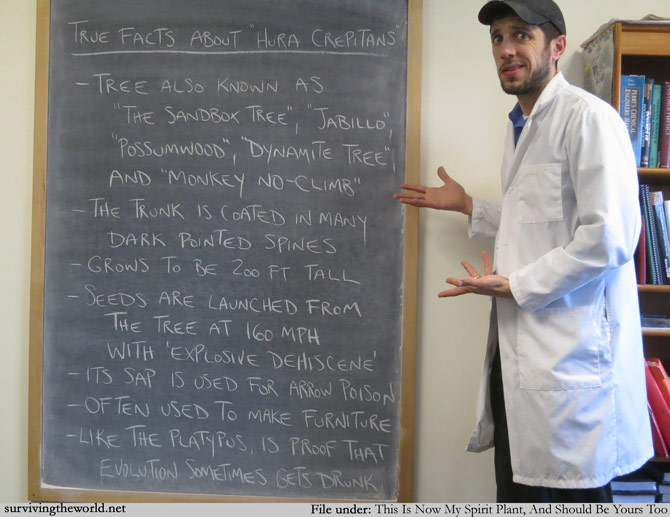 TRUE FACTS ABOUT "HURA CREPITANS"
- TREE ALSO KNOWN AS
"THE SANDBOX TREE", "JABILLO",
"POSSUMWOOD", "DYNAMITE TREE",
AND "MONKEY NO-CLIMB"
- THE TRUNK IS COATED IN MANY
DARK POINTED SPINES
- GROWS TO BE 200 FT TALL
- SEEDS ARE LAUNCHED FROM
THE TREE AT 160 MPH
WITH 'EXPLOSIVE DEHISCENE'
- ITS SAP IS USED FOR ARROW POISON
- OFTEN USED TO MAKE FURNITURE
- LIKE THE PLATYPUS, IS PROOF THAT
EVOLUTION SOMETIMES GETS DRUNK
survivingtheworld.net
File under: This Is Now My Spirit Plant, And Should Be Yours Too